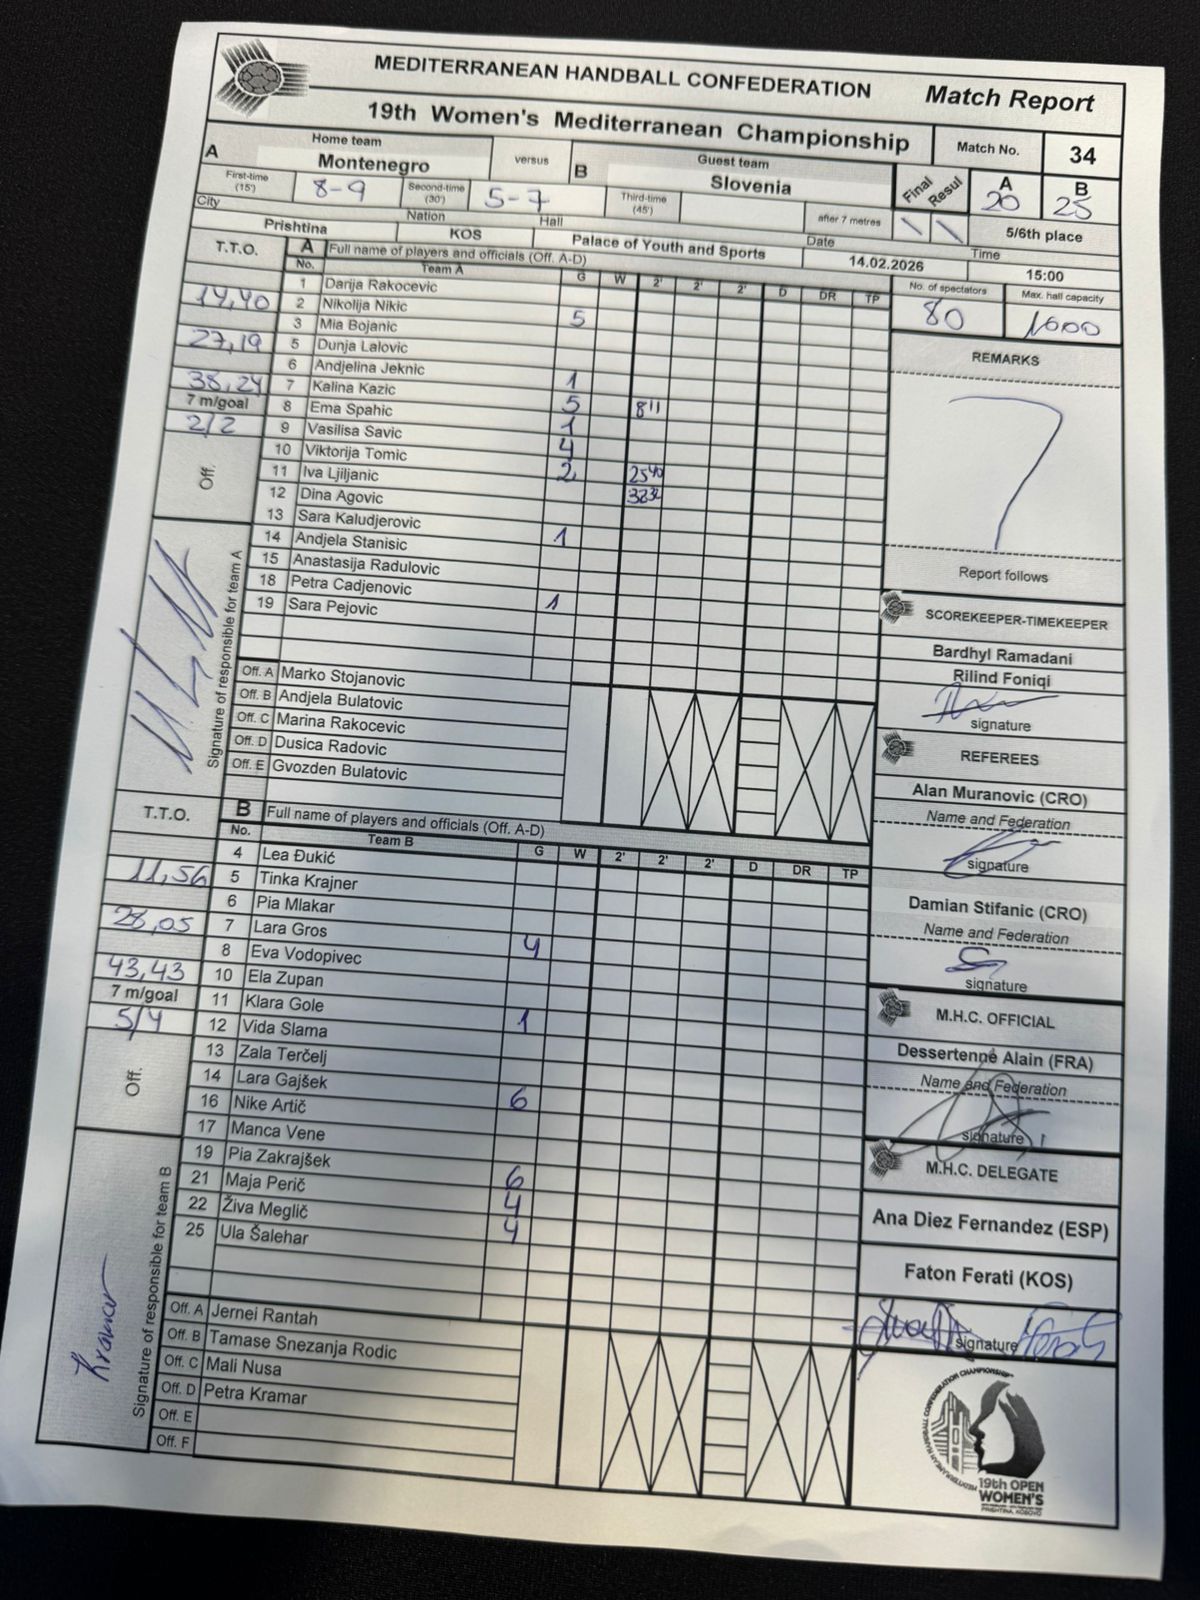 MEDITERRANEAN HANDBALL CONFEDERATION Match Report
19th Women's Mediterranean Championship Match No. 34
A Home team Montenegro versus B Guest team Slovenia Final Resul A 20 B 25
First-time (15') 8-9 Second-time (30') 5-7 Third-time (45') after 7 metres 5/6th place
City Prishtina Nation KOS Hall Palace of Youth and Sports Date 14.02.2026 Time 15:00
No. of spectators 80 Max. hall capacity 1600
T.T.O. A Full name of players and officials (Off. A-D)
No. Team A G W 2' 2' 2' D DR TP
14,40
27,19
38,24
7 m/goal
2/2
Off.
1 Darija Rakocevic
2 Nikolija Nikic
3 Mia Bojanic 5
5 Dunja Lalovic
6 Andjelina Jeknic
7 Kalina Kazic 1
8 Ema Spahic 5 8 11
9 Vasilisa Savic 1
10 Viktorija Tomic 4
11 Iva Ljiljanic 2 25 40
12 Dina Agovic 38 32
13 Sara Kaludjerovic
14 Andjela Stanisic 1
15 Anastasija Radulovic
18 Petra Cadjenovic
19 Sara Pejovic 1
Off. A Marko Stojanovic
Off. B Andjela Bulatovic
Off. C Marina Rakocevic
Off. D Dusica Radovic
Off. E Gvozden Bulatovic
Signature of responsible for team A
T.T.O. B Full name of players and officials (Off. A-D)
No. Team B G W 2' 2' 2' D DR TP
11,56
28,05
43,43
7 m/goal
5/4
Off.
4 Lea Đukić
5 Tinka Krajner
6 Pia Mlakar
7 Lara Gros
8 Eva Vodopivec 4
10 Ela Zupan
11 Klara Gole
12 Vida Slama 1
13 Zala Terčelj
14 Lara Gajšek
16 Nike Artič 6
17 Manca Vene
19 Pia Zakrajšek
21 Maja Perič 6
22 Živa Meglič 4
25 Ula Šalehar 4
Off. A Jernei Rantah
Off. B Tamase Snezanja Rodic
Off. C Mali Nusa
Off. D Petra Kramar
Off. E
Off. F
Signature of responsible for team B
Kramar
REMARKS
Report follows
SCOREKEEPER-TIMEKEEPER
Bardhyl Ramadani
Rilind Foniqi
signature
REFEREES
Alan Muranovic (CRO)
Name and Federation
signature
Damian Stifanic (CRO)
Name and Federation
signature
M.H.C. OFFICIAL
Dessertenne Alain (FRA)
Name and Federation
signature
M.H.C. DELEGATE
Ana Diez Fernandez (ESP)
Faton Ferati (KOS)
signature
19th OPEN
WOMEN'S
PRISHTINA, KOSOVO